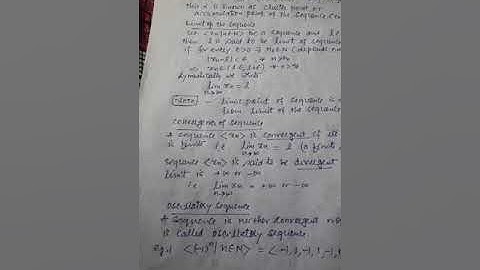 this α is known as cluster point or
accumulation point of the sequence
Limit of the Sequence
Let <xn | n∈N> be a sequence and l
then l is said to be limit of sequence
if for every ε>0 ∃ m∈N (depends
|xn-l| < ε, ∀ n≥m
Symbolically we write
lim xn = l
n→∞
Note - limit point of sequence is
from limit of the sequence
Convergence of sequence
A sequence <xn> is convergent if
is finite i.e. lim xn = l (a finite
n→∞
sequence <xn> is said to be divergent
limit is +∞ or -∞
i.e. lim xn = +∞ or -∞
n→∞
Oscillatory Sequence
A sequence is neither convergent
is called oscillatory sequence.
Eg.1 <(-1)^n | n∈N> = <-1, 1, -1, 1, -1,